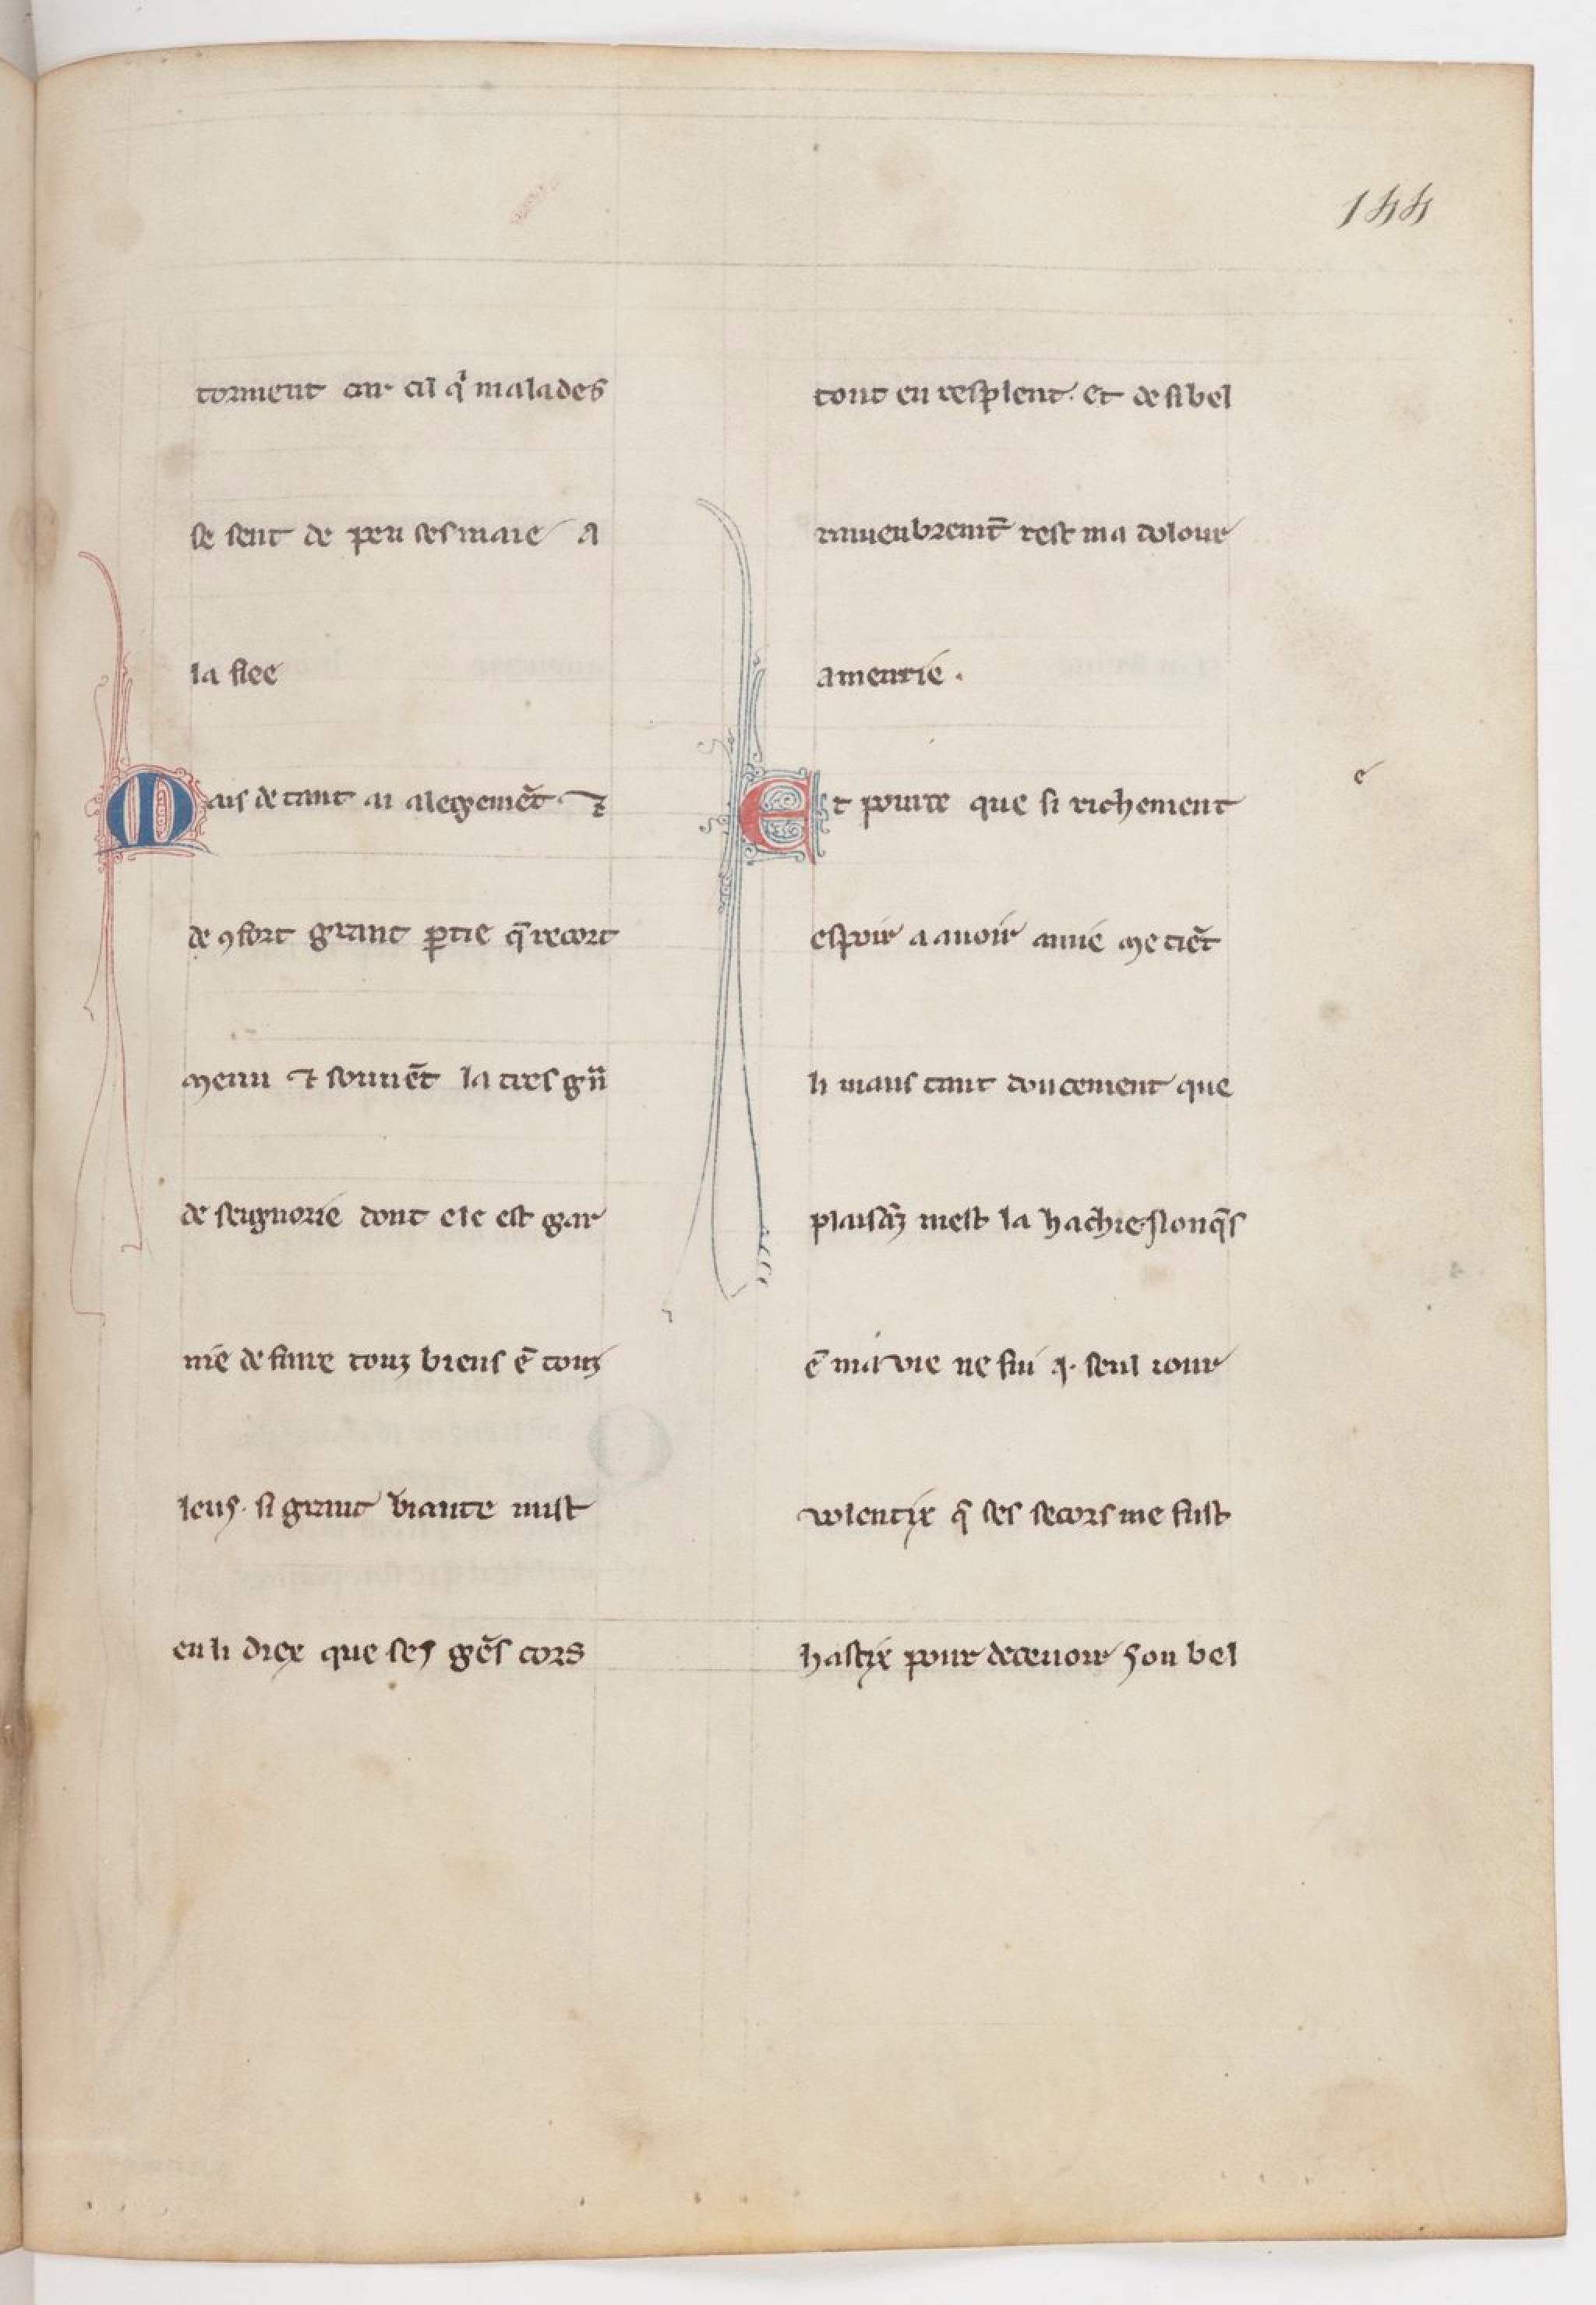 144
torment car cil q̍ malades
se sent de peu sesmaie a
la fiee
Mais de tant ai alegemēt ⁊
de ꝯfort grant ꝑtie q̄ recort
menu ⁊ souuēt la tres gñ
de seignorie dont ele est gar
nie de faire touz biens ē touz
leus. si grant biaute mist
en li diex que ses gēs cors
tout en resplent. et de si bel
ramenbremt̄ rest ma dolour
amenrie.
e
Et pource que si richement
espoir a auoir amie me tiēt
li maus tant doucement que
plaisāz mest la hachie. si onq̄s
ē ma vie ne fui .j. seul iour
volentix q̄ ses secors me fust
hastix pour deceuoir son bel